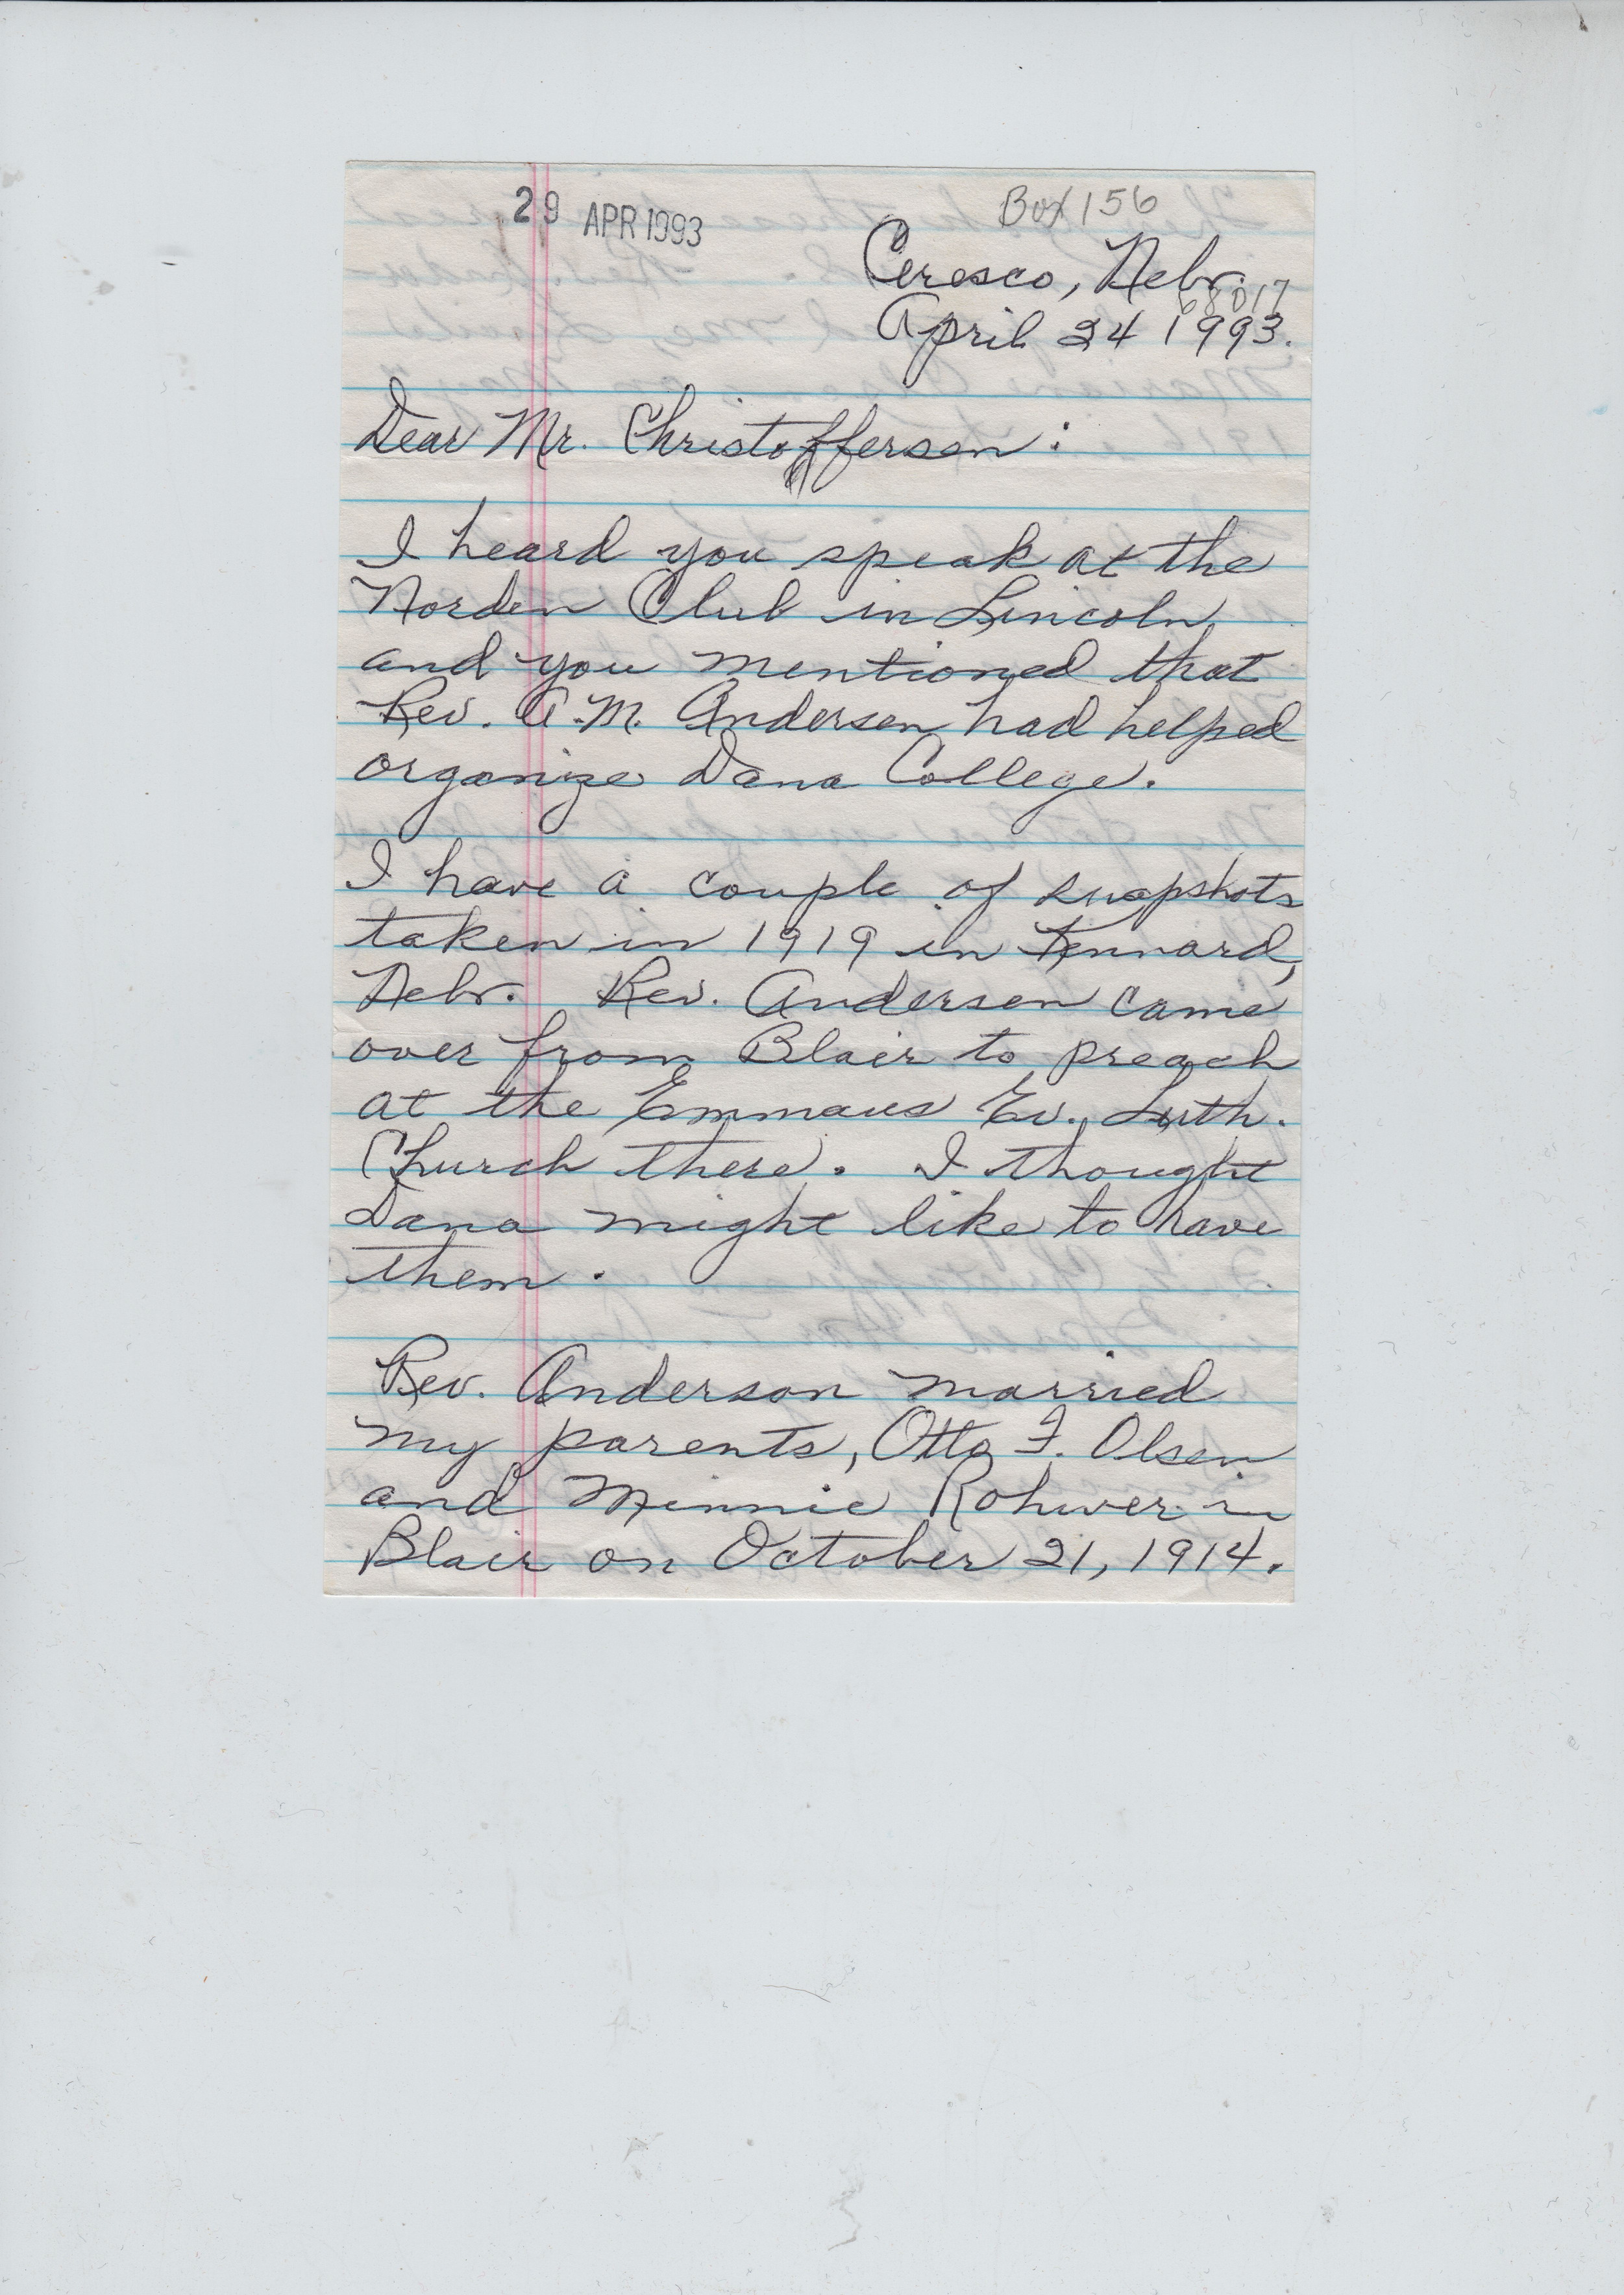 29 APR 1993
Box 156
Ceresco, Nebr.
68017
April 24 1993.
Dear Mr. Christoffersen:
I heard you speak at the
Norden Club in Lincoln
and you mentioned that
Rev. A.M. Andersen had helped
organize Dana College.
I have a couple of snapshots
taken in 1919 in Kennard,
Nebr. Rev. Andersen came
over from Blair to preach
at the Emmaus Ev. Luth.
Church there. I thought
Dana might like to have
them.
Rev. Anderson married
my parents, Otto F. Olsen
and Minnie Rohwer in
Blair on October 21, 1914.